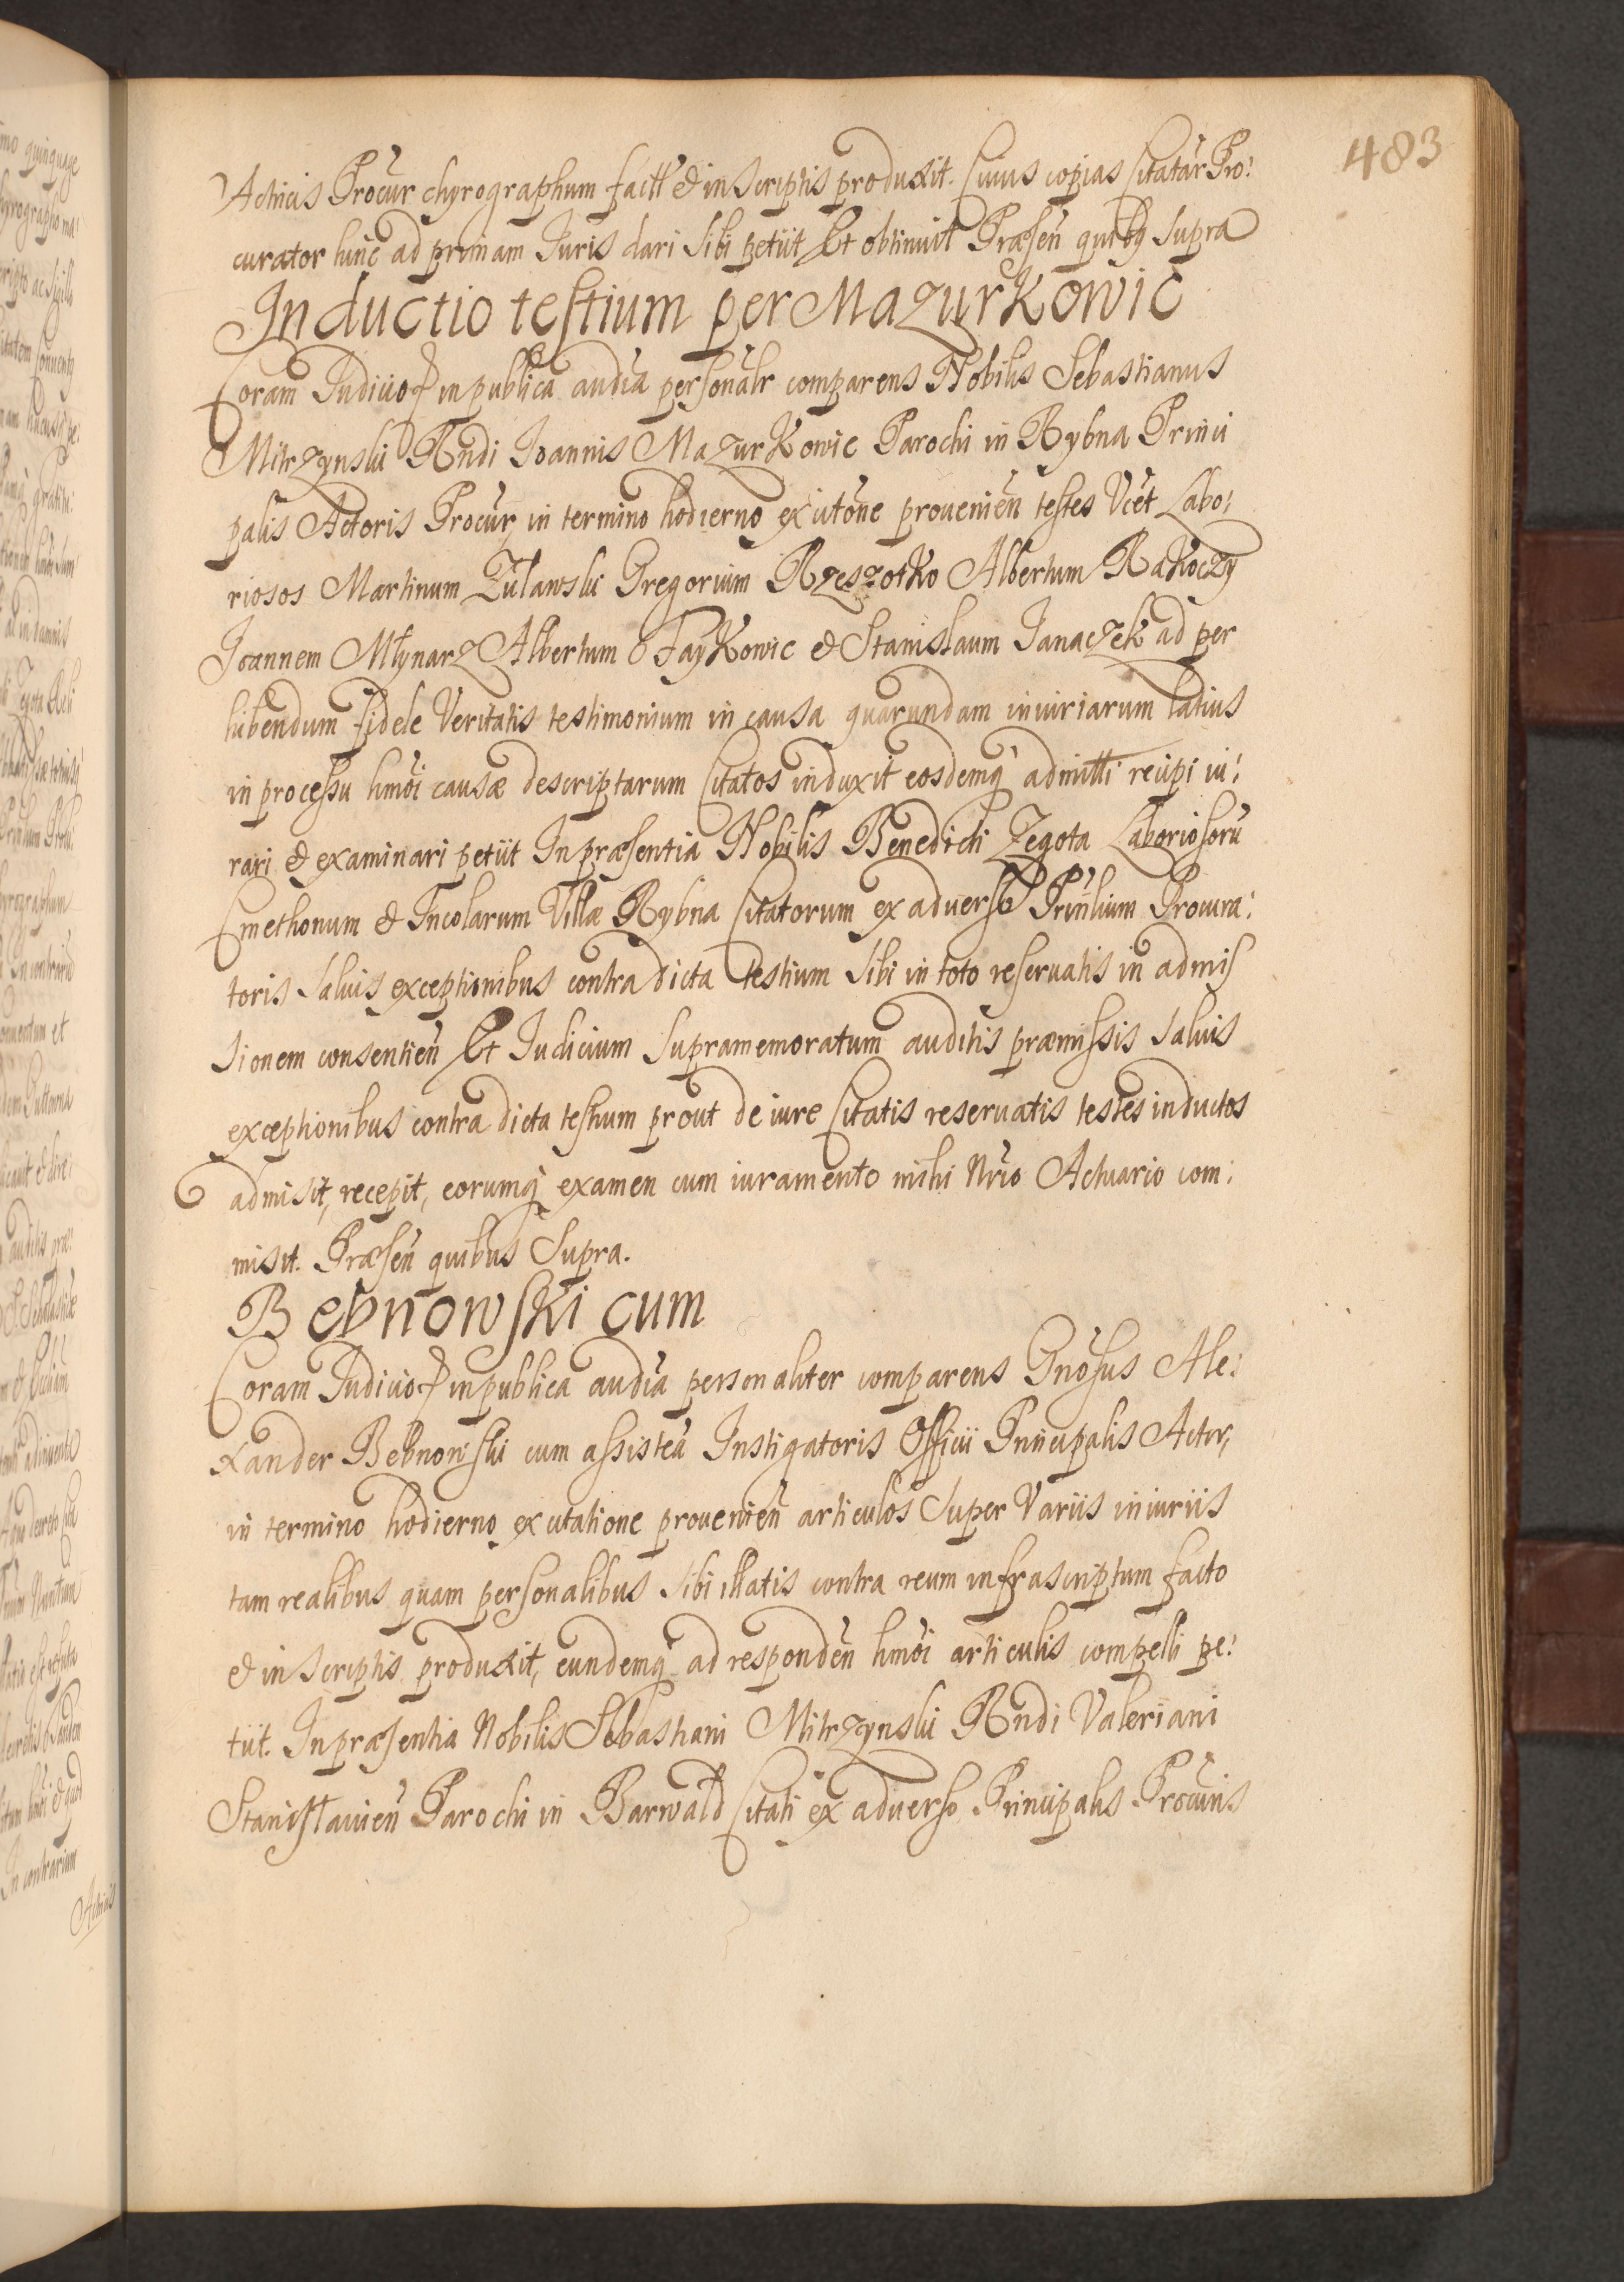 483
Actricis Procur chyrographum factt & in scriptis produxit. Cuius copias Citatar Pro:
curator hunc ad primam Iuris dari sibi petiit Et obtinuit Præsen quibq supra
Inductio testium per Mazurkowic
Coram Iudicio in publica audia personalr comparens Nobilis Sebastianus
Mitrzynski Rndi Ioannis Mazurkowic Parochi in Rybna Princi
palis Actoris Procur, in termino hodierno ex citone prouenien testes Vcet Labo:
riosos Martinum Zulawski Gregorium Rzeszotko Albertum Rakoczy
Ioannem Młynarz Albertum Faykowic & Stanislaum Janaczek ad per
hibendum fidele Veritatis testimonium in causa quarundam iniuriarum latius
in processu hmoi causæ descriptarum Citatos induxit eosdemq admitti recipi iu:
rari & examinari petiit In præsentia Nobilis Benedicti Zegota Laboriosoru
Cmethonum & Incolarum Villæ Rybna Citatorum ex aduerso Prinlium Procura:
toris saluis exceptionibus contra dicta testium sibi in toto reseruatis in admis
sionem consentien Et Iudicium supramemoratum auditis præmissis saluis
exceptionibus contra dicta testium prout de iure Citatis reseruatis testes inductos
admisit, recepit, eorumq examen cum iuramento mihi Nrio Actuario com:
misit. Præsen quibus supra.
Bebnowski cum
Coram Iudicio in publica audia personaliter comparens Gnosus Ale:
xander Bebnowski cum assistea Instigatoris Officii Principalis Actor,
in termino hodierno ex citatione prouenien articulos super Variis iniuriis
tam realibus quam personalibus sibi illatis contra reum infrascriptum facto
& in scriptis produxit, eundemq ad responden hmoi articulis compelli pe:
tiit. In præsentia Nobilis Sebastiani Mitrzynski Rndi Valeriani
Stanisłauien Parochi in Barwałd Citati ex aduerso Principalis Procuris